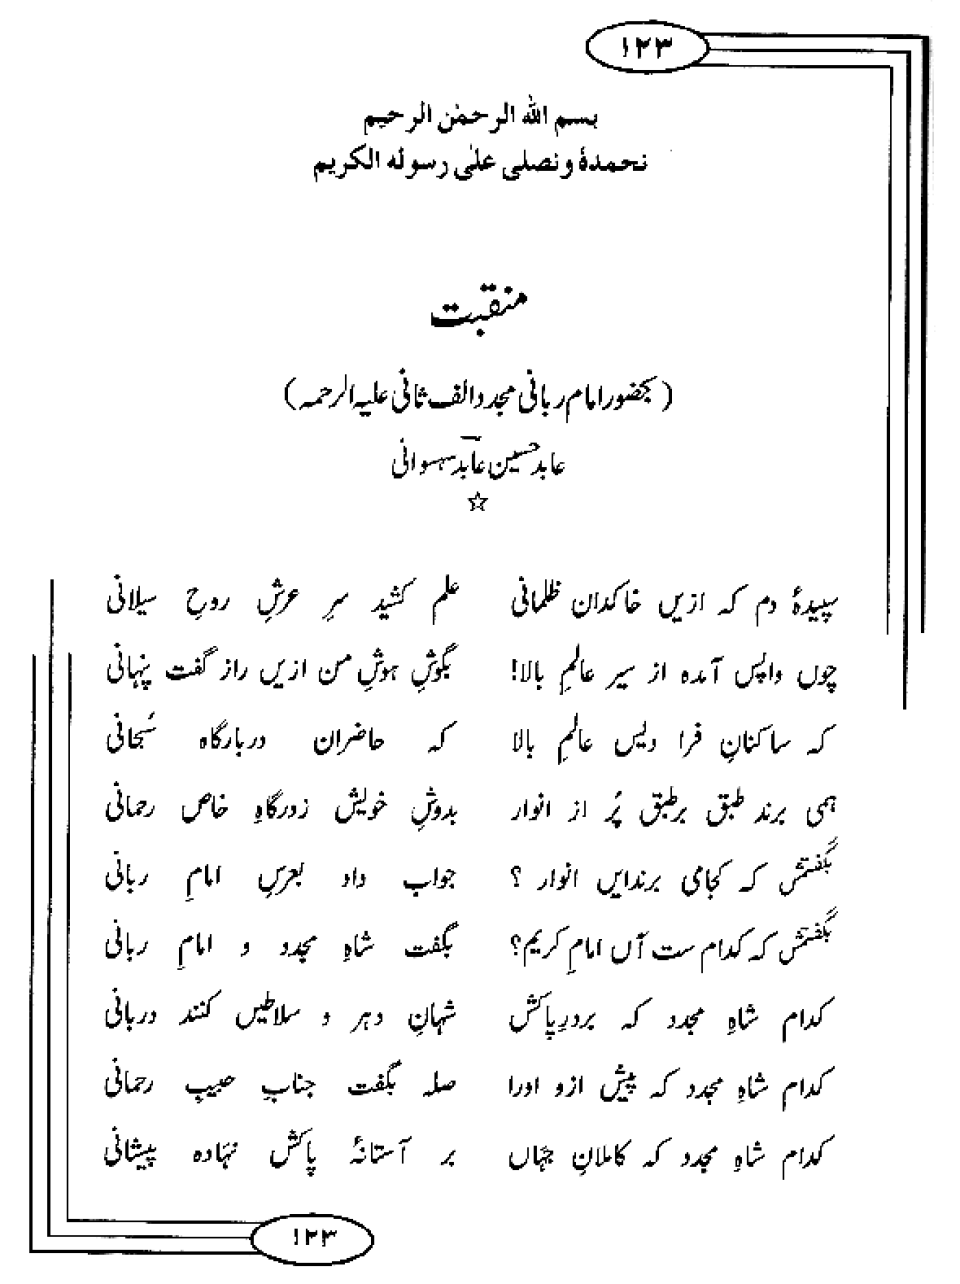 ۱۲۳
بسم اللہ الرحمٰن الرحیم
نحمدہٗ و نصلی علٰی رسولہ الکریم
منقبت
(بحضور امام ربانی مجدد الف ثانی علیہ الرحمہ)
عابد حسین عابدؔ سہسوانی
☆
سپیدۂ دم کہ ازیں خاکدان ظلمانی علم کشید سرِ عرشِ روحِ سیلانی
چوں واپس آمدہ از سیر عالمِ بالا! بگوشِ ہوشِ من ازیں راز گفت پنہانی
کہ ساکنانِ فرا دیس عالمِ بالا کہ حاضران دربارگاہ سُبحانی
ہمی برند طبق برطبق پُر از انوار بدوشِ خویش زدرگاہِ خاص رحمانی
بگفتمش کہ کجامی برندایں انوار ؟ جواب داد بعرسِ امامِ ربانی
بگفتمش کہ کدام ست آں امامِ کریم؟ بگفت شاہِ مجدد و امامِ ربانی
کدام شاہِ مجدد کہ بردرِپاکش شہانِ دہر و سلاطیں کنند دربانی
کدام شاہِ مجدد کہ پیش ازو اورا صلہ بگفت جنابِ حبیبِ رحمانی
کدام شاہِ مجدد کہ کاملانِ جہاں بر آستانۂ پاکش نہادہ پیشانی
۱۲۳